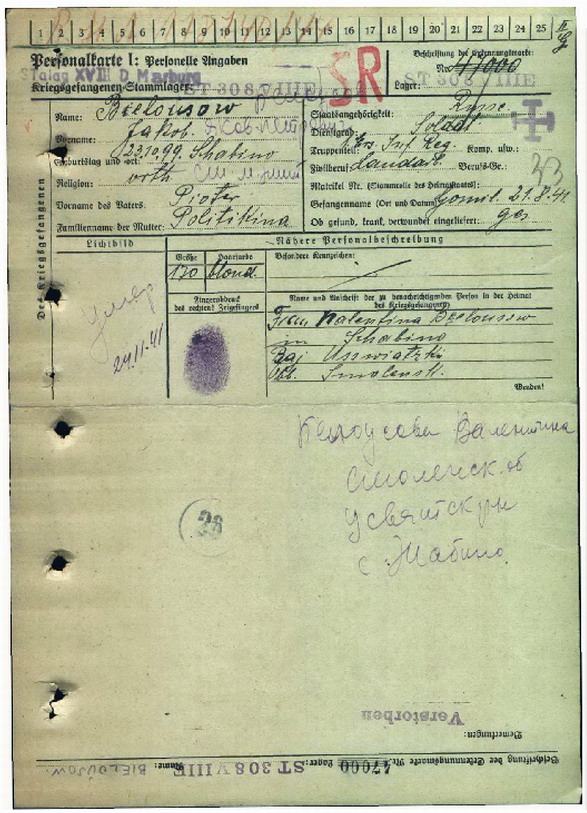 1 2 3 4 5 6 7 8 9 10 11 12 13 14 15 16 17 18 19 20 21 22 23 24 25
Personalkarte I: Personelle Angaben
Beschriftung der Erkennungsmarke:
Stalag XVIII D Marburg
Nr. 47000
Kriegsgefangenen-Stammlager: ST 308 VIIIE
SR
Lager: ST 308 VIIIE
Des Kriegsgefangenen
Name: Bielousow
Vorname: Jakob.
Geburtstag und -ort: 23.10.99. Schabino
Religion: orth
Vorname des Vaters: Pioter
Familienname der Mutter: Politikina
Staatsangehörigkeit: Russe.
Dienstgrad: Soldat
Truppenteil: Ers. Inf. Reg. Komp. usw.:
Zivilberuf: Landarb. Berufs-Gr.:
33
Matrikel Nr. (Stammrolle des Heimatstaates):
Gefangennahme (Ort und Datum): Gomel. 21.8.41.
Ob gesund, krank, verwundet eingeliefert: ges
Lichtbild
Größe
Haarfarbe
170
blond.
Fingerabdruck
des rechten! Zeigefingers
Nähere Personalbeschreibung
Besondere Kennzeichen:
Name und Anschrift der zu benachrichtigenden Person in der Heimat
des Kriegsgefangenen
Frau Walentina Bielousow
in Schabino
Raj Usswiatzki
Obl. Smolensk.
Wenden!
умер
24.11.41
Белоусова Валентина
Смоленск. об
Усвятск рн
с Жабино
26
Verstorben
Bemerkungen:
Beschriftung der Erkennungsmarke Nr. 47000 Lager: ST 308 VIIIE Name: BIELOUSOW.